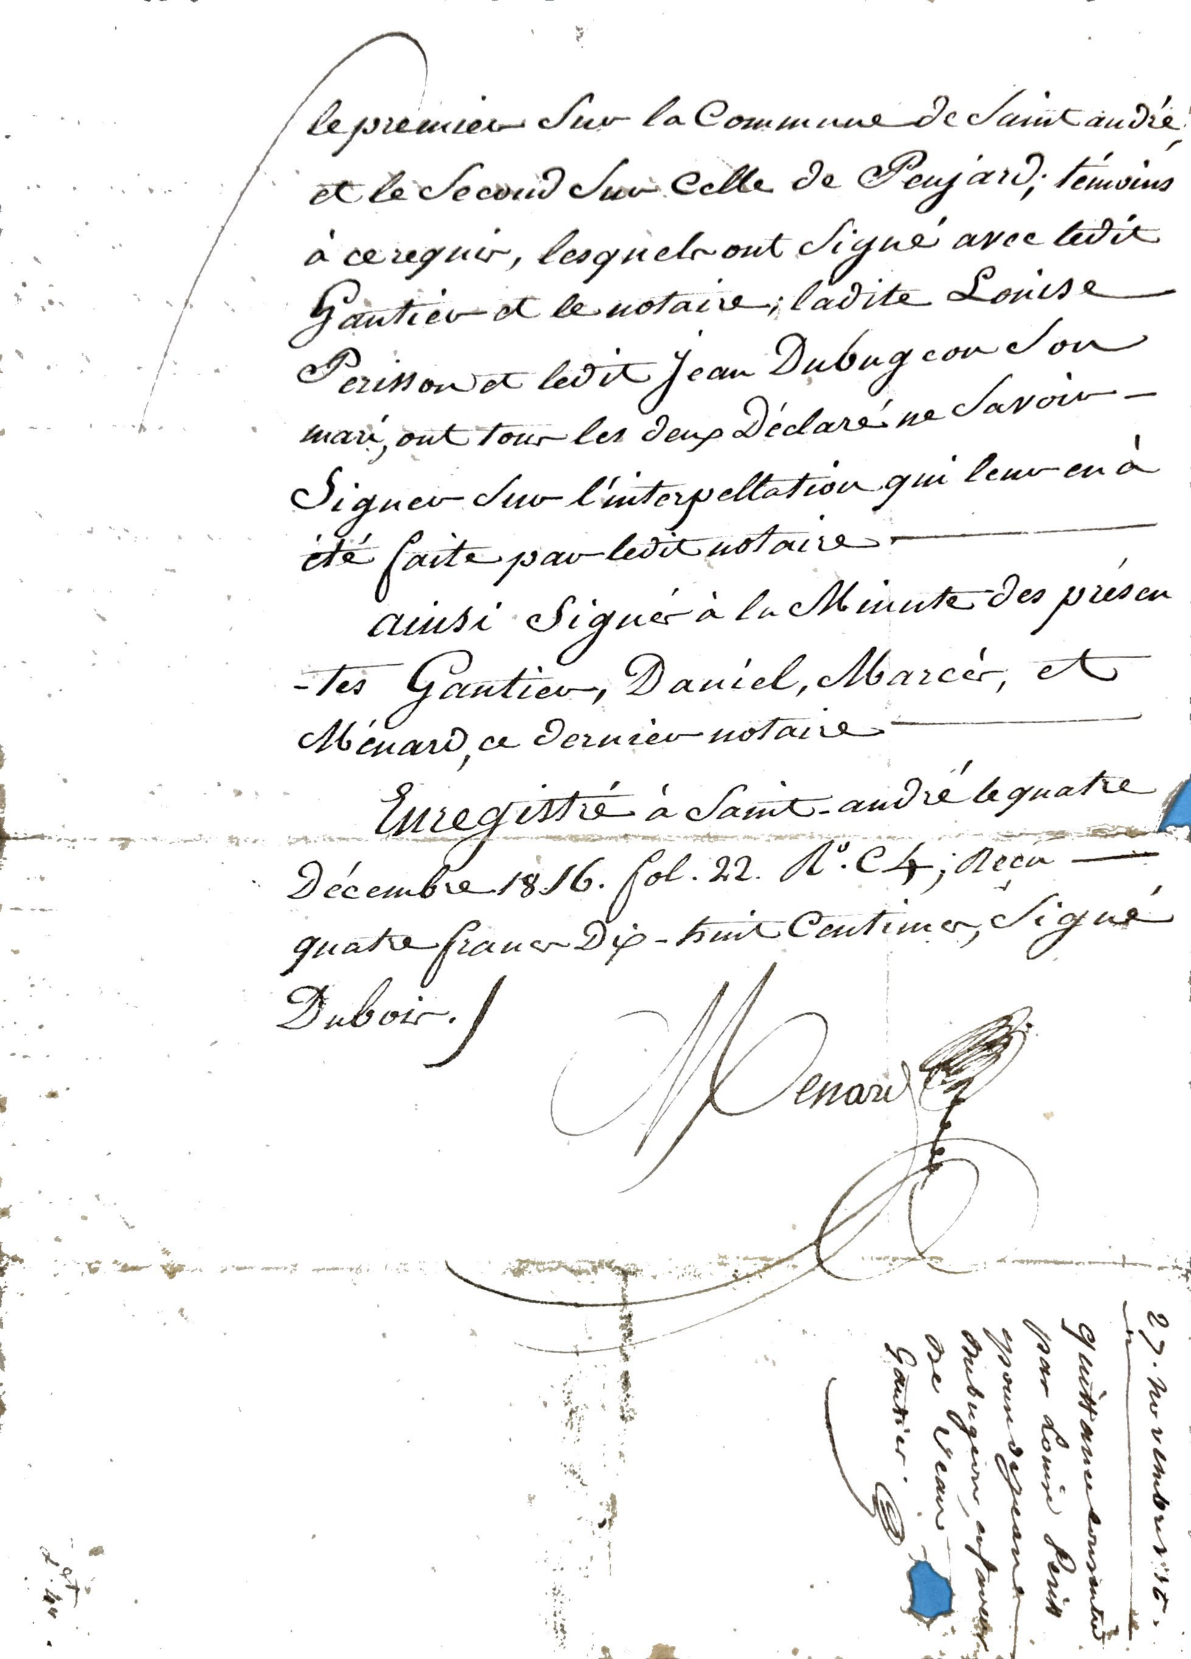 le premier sur la Commune de Saint andré
et le second sur celle de Peujard; témoins
à ce requis, lesquels ont signé avec ledit
Gautier et le notaire; ladite Louise
Perisson et ledit Jean Dubugeon son
mari, ont tous les deux Déclaré ne savoir
Signer sur l'interpellation qui leur en à
été faite par ledit notaire
ainsi Signés à la Minute des présen
-tes Gautier, Daniel, Marcés, et
Ménard, ce dernier notaire
Enregistré à Saint-andré le quatre
Décembre 1816. fol. 22. Ro. C 4; Recu
quatre francs Dix-huit Centimes, Signé
Dubois.
Menard
27. novembre 1816.
quittance consentie
par Louise Periss
epouse de jean
Dubugeon, en faveur
de Jean
Gautier.